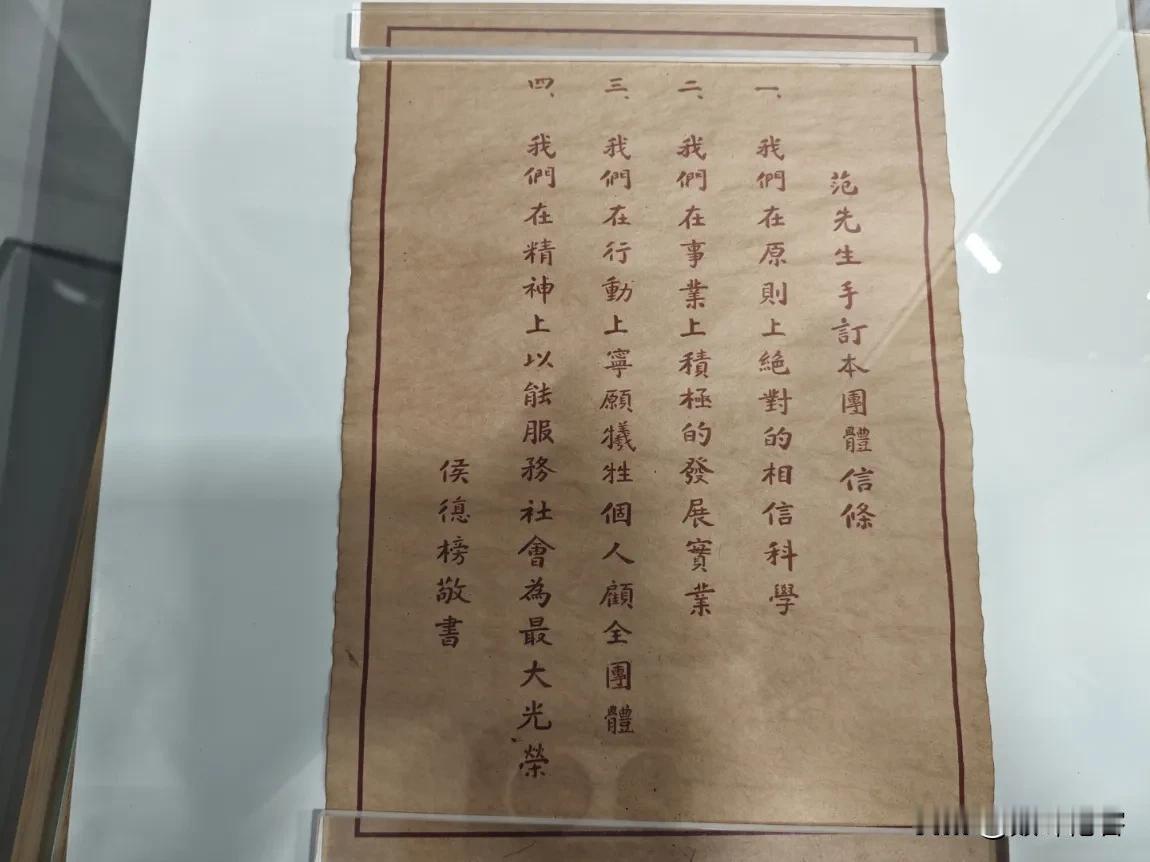 范先生手訂本團體信條
一、我們在原則上絕對的相信科學
二、我們在事業上積極的發展實業
三、我們在行動上寧願犧牲個人顧全團體
四、我們在精神上以能服務社會為最大光榮
侯德榜敬書